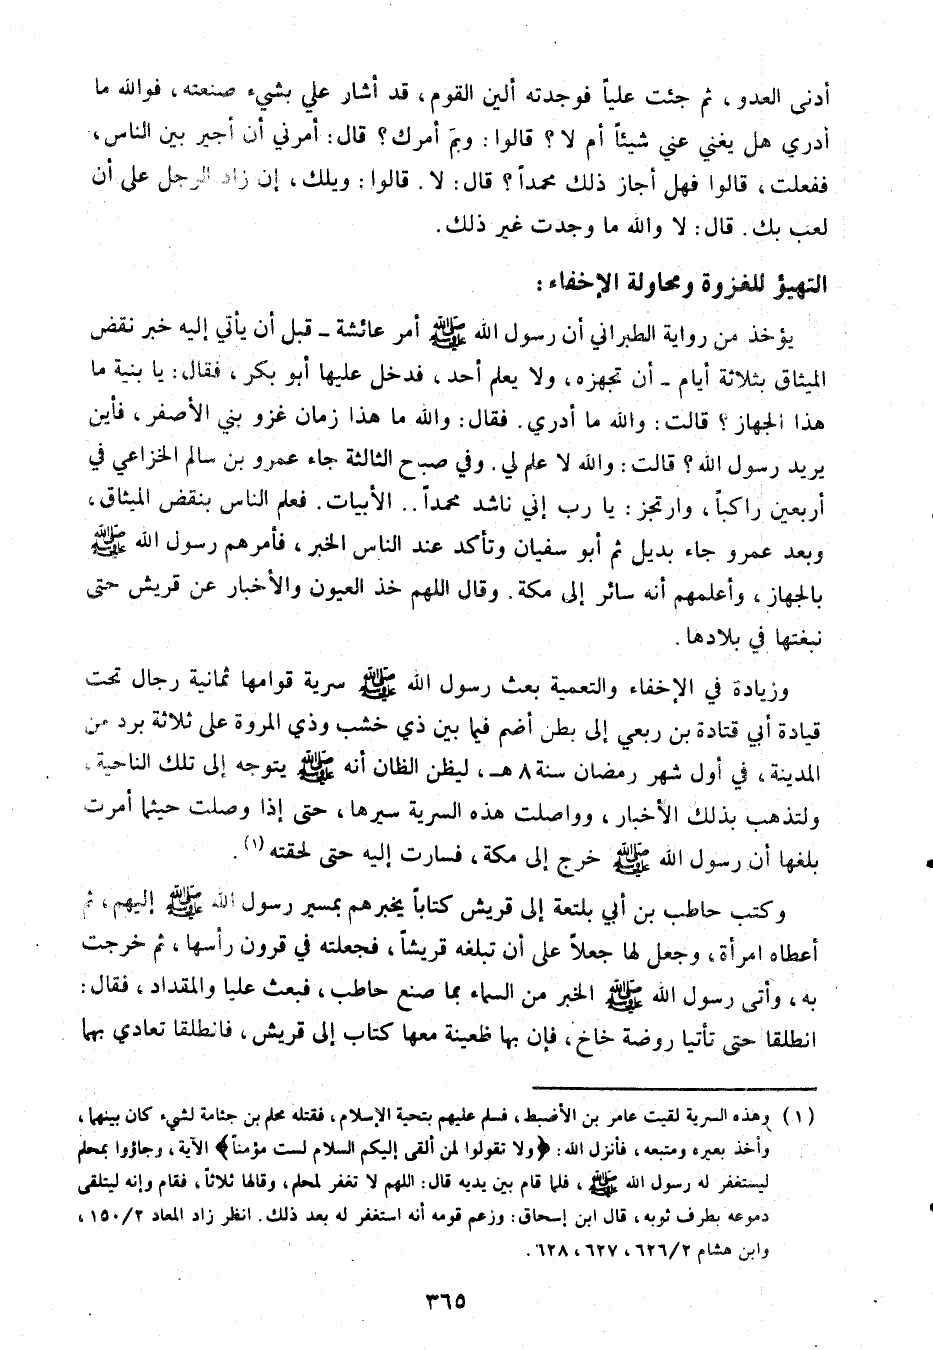 أدنى العدو، ثم جئت علياً فوجدته ألين القوم، قد أشار علي بشيء صنعته، فوالله ما
أدري هل يغني عني شيئاً أم لا؟ قالوا: وبمَ أمرك؟ قال: أمرني أن أجير بين الناس،
ففعلت، قالوا فهل أجاز ذلك محمداً؟ قال: لا. قالوا: ويلك، إن زاد الرجل على أن
لعب بك. قال: لا والله ما وجدت غير ذلك.
التهيؤ للغزوة ومحاولة الإخفاء:
يؤخذ من رواية الطبراني أن رسول الله ﷺ أمر عائشة ـ قبل أن يأتي إليه خبر نقض
الميثاق بثلاثة أيام ـ أن تجهزه، ولا يعلم أحد، فدخل عليها أبو بكر، فقال: يا بنية ما
هذا الجهاز؟ قالت: والله ما أدري. فقال: والله ما هذا زمان غزو بني الأصفر، فأين
يريد رسول الله؟ قالت: والله لا علم لي. وفي صباح الثالثة جاء عمرو بن سالم الخزاعي في
أربعين راكباً، وارتجز: يا رب إني ناشد محمداً.. الأبيات. فعلم الناس بنقض الميثاق،
وبعد عمرو جاء بديل ثم أبو سفيان وتأكد عند الناس الخبر، فأمرهم رسول الله ﷺ
بالجهاز، وأعلمهم أنه سائر إلى مكة. وقال اللهم خذ العيون والأخبار عن قريش حتى
نبغتها في بلادها.
وزيادة في الإخفاء والتعمية بعث رسول الله ﷺ سرية قوامها ثمانية رجال تحت
قيادة أبي قتادة بن ربعي إلى بطن أضم فيما بين ذي خشب وذي المروة على ثلاثة برد من
المدينة، في أول شهر رمضان سنة ٨ هـ، ليظن الظان أنه ﷺ يتوجه إلى تلك الناحية،
ولتذهب بذلك الأخبار، وواصلت هذه السرية سيرها، حتى إذا وصلت حيثما أمرت
بلغها أن رسول الله ﷺ خرج إلى مكة، فسارت إليه حتى لحقته (١).
وكتب حاطب بن أبي بلتعة إلى قريش كتاباً يخبرهم بمسير رسول الله ﷺ إليهم، ثم
أعطاه امرأة، وجعل لها جعلاً على أن تبلغه قريشاً، فجعلته في قرون رأسها، ثم خرجت
به، وأتى رسول الله ﷺ الخبر من السماء بما صنع حاطب، فبعث عليا والمقداد، فقال:
انطلقا حتى تأتيا روضة خاخ، فإن بها ظعينة معها كتاب إلى قريش، فانطلقا تعادي بهما
(١) وهذه السرية لقيت عامر بن الأضبط، فسلم عليهم بتحية الإسلام، فقتله محلم بن جثامة لشيء كان بينهما،
وأخذ بعيره ومتيعه، فأنزل الله: ﴿ولا تقولوا لمن ألقى إليكم السلام لست مؤمناً﴾ الآية، وجاؤوا بمحلم
ليستغفر له رسول الله ﷺ، فلما قام بين يديه قال: اللهم لا تغفر لمحلم، وقالها ثلاثاً، فقام وإنه ليتلقى
دموعه بطرف ثوبه، قال ابن إسحاق: وزعم قومه أنه استغفر له بعد ذلك. انظر زاد المعاد ٢/١٥٠،
وابن هشام ٢/٦٢٦، ٦٢٧، ٦٢٨.
٣٦٥